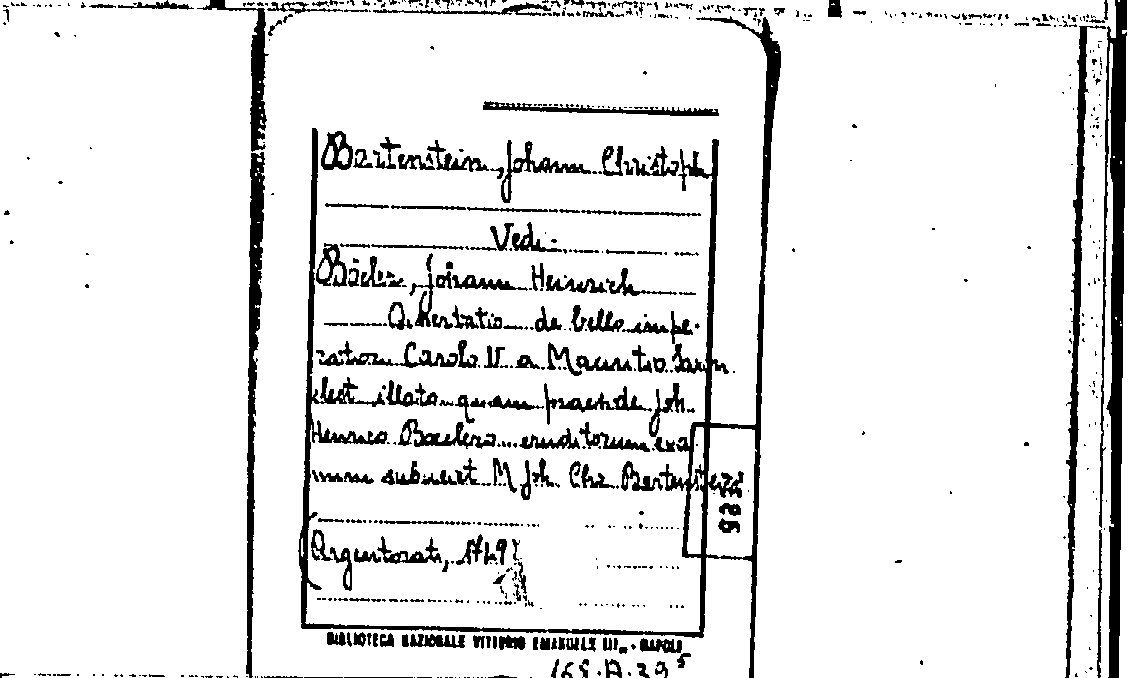 Bartenstein, Johann Christoph
Vedi:
Böcler, Johann Heinrich
Dissertatio de bello impe-
ratori Carolo V a Mauritio Saxon
elect illato quam praeside Joh.
Henrico Boeclero eruditorum exa
mini subiiciet M Joh. Chr Bartenstein
(Argentorati,
BIBLIOTECA NAZIONALE VITTORIO EMANUELE III - NAPOLI